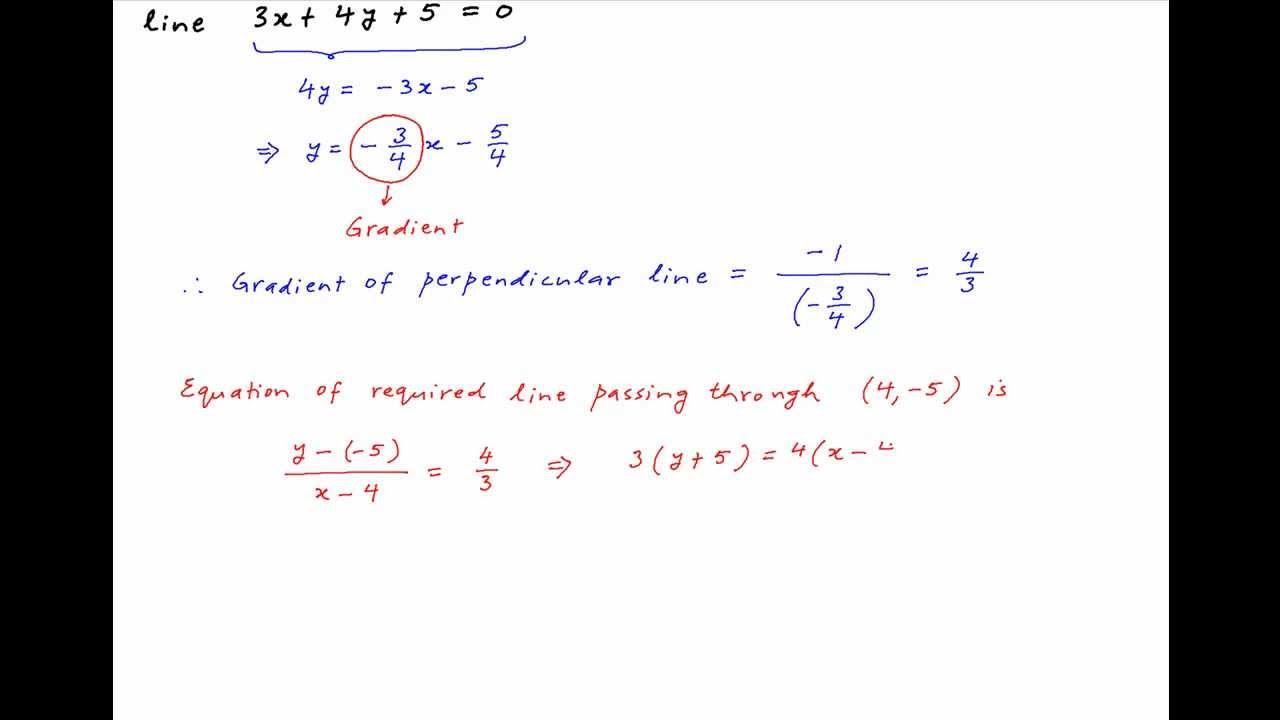 line 3x + 4y + 5 = 0
4y = -3x - 5
⇒ y = -3/4 x - 5/4
Gradient
∴ Gradient of perpendicular line = -1/(-3/4) = 4/3
Equation of required line passing through (4, -5) is
y - (-5)/x - 4 = 4/3 ⇒ 3(y + 5) = 4(x -